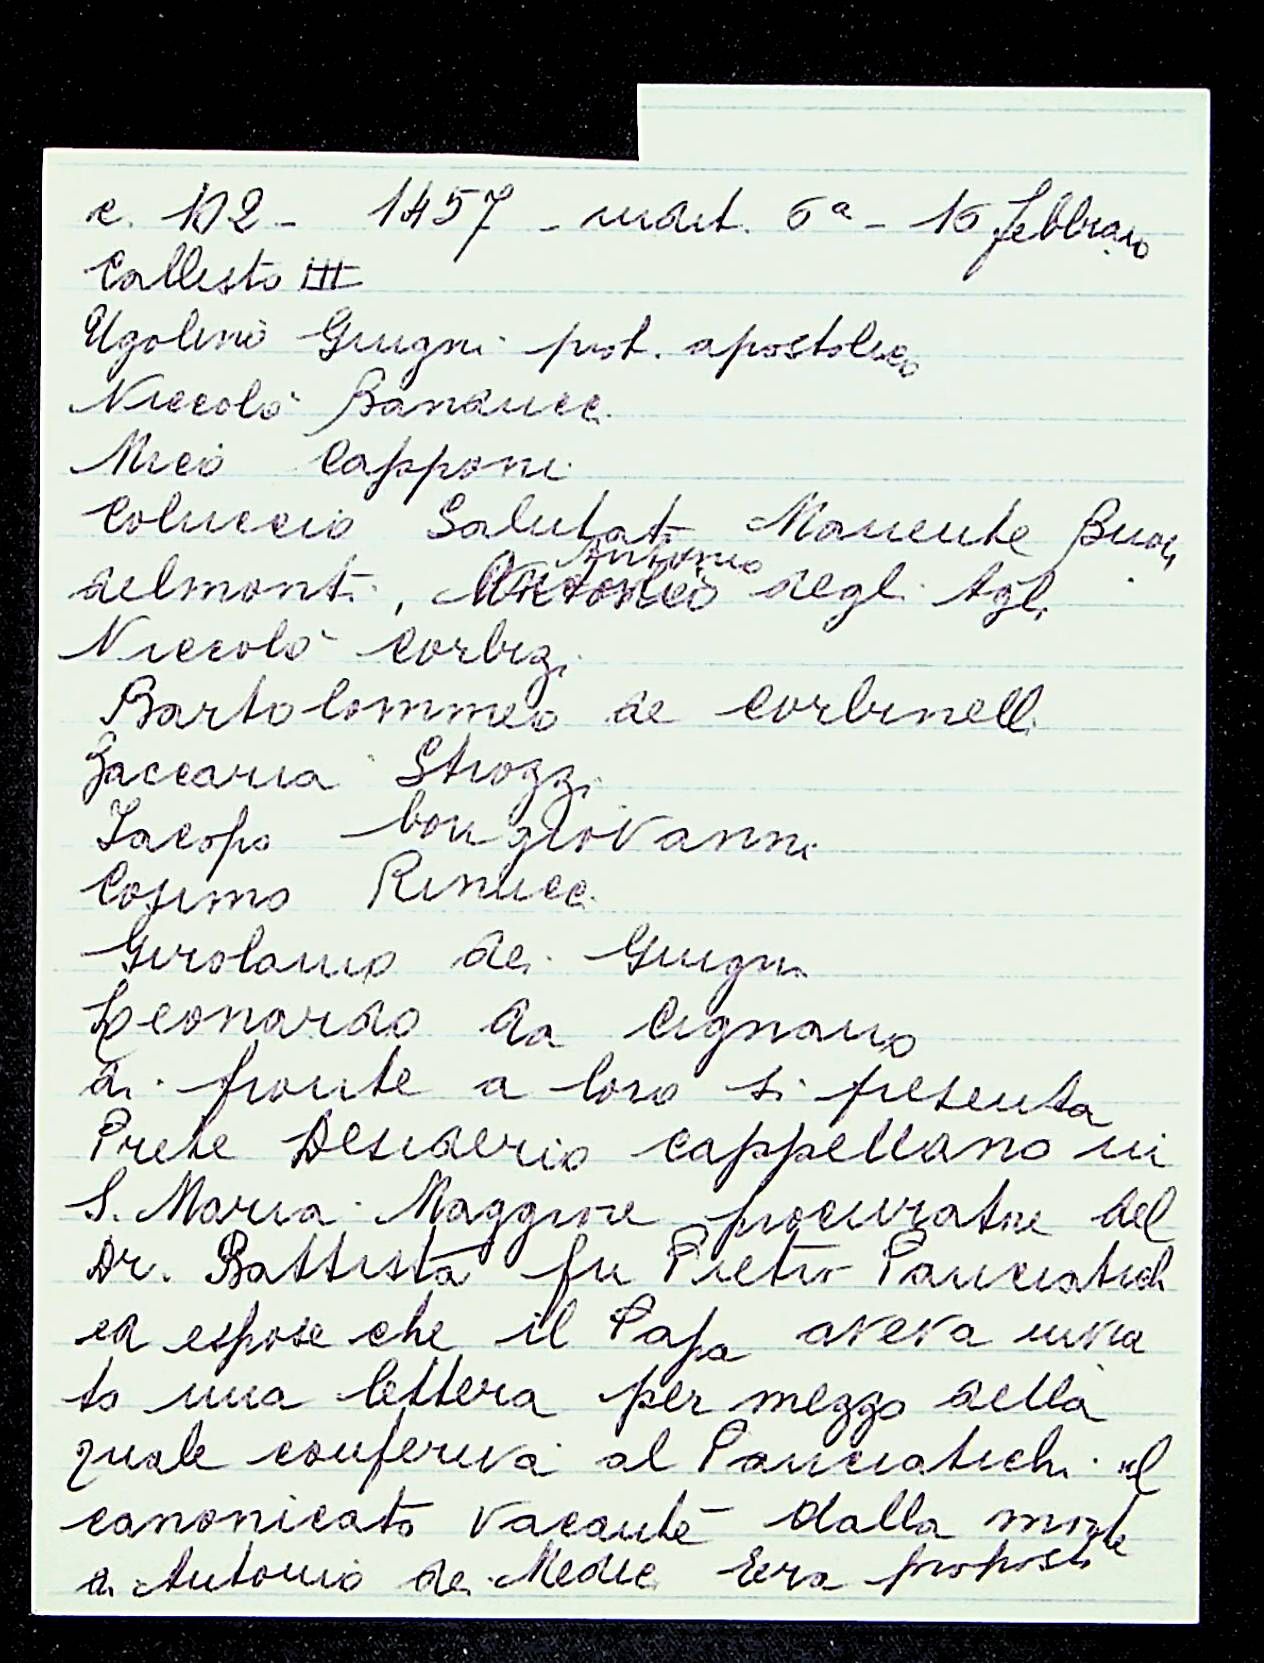 c. 102 - 1457 - indit. 6ª - 16 febbraio
Callisto III
Ugolino Giugni prot. apostolico
Niccolò Banducci
Micò Capponi
Coluccio Salutati Manente Buon
delmonti, Antonio degli Agli
Niccolò Corbizi
Bartolommeo de Corbinelli
Zaccaria Strozzi
Iacopo bongiovanni
Cosimo Rinucci
Girolamo dei Giugni
Leonardo da Cignano
di fronte a loro si presenta
Prete Desiderio cappellano in
S. Maria Maggiore procuratore del
Dr. Battista fu Pietro Panciatich
ed espose che il Papa aveva invia
to una lettera per mezzo della
quale conferiva al Panciatichi il
canonicato vacante dalla morte
di Antonio dei Medici Era proposto